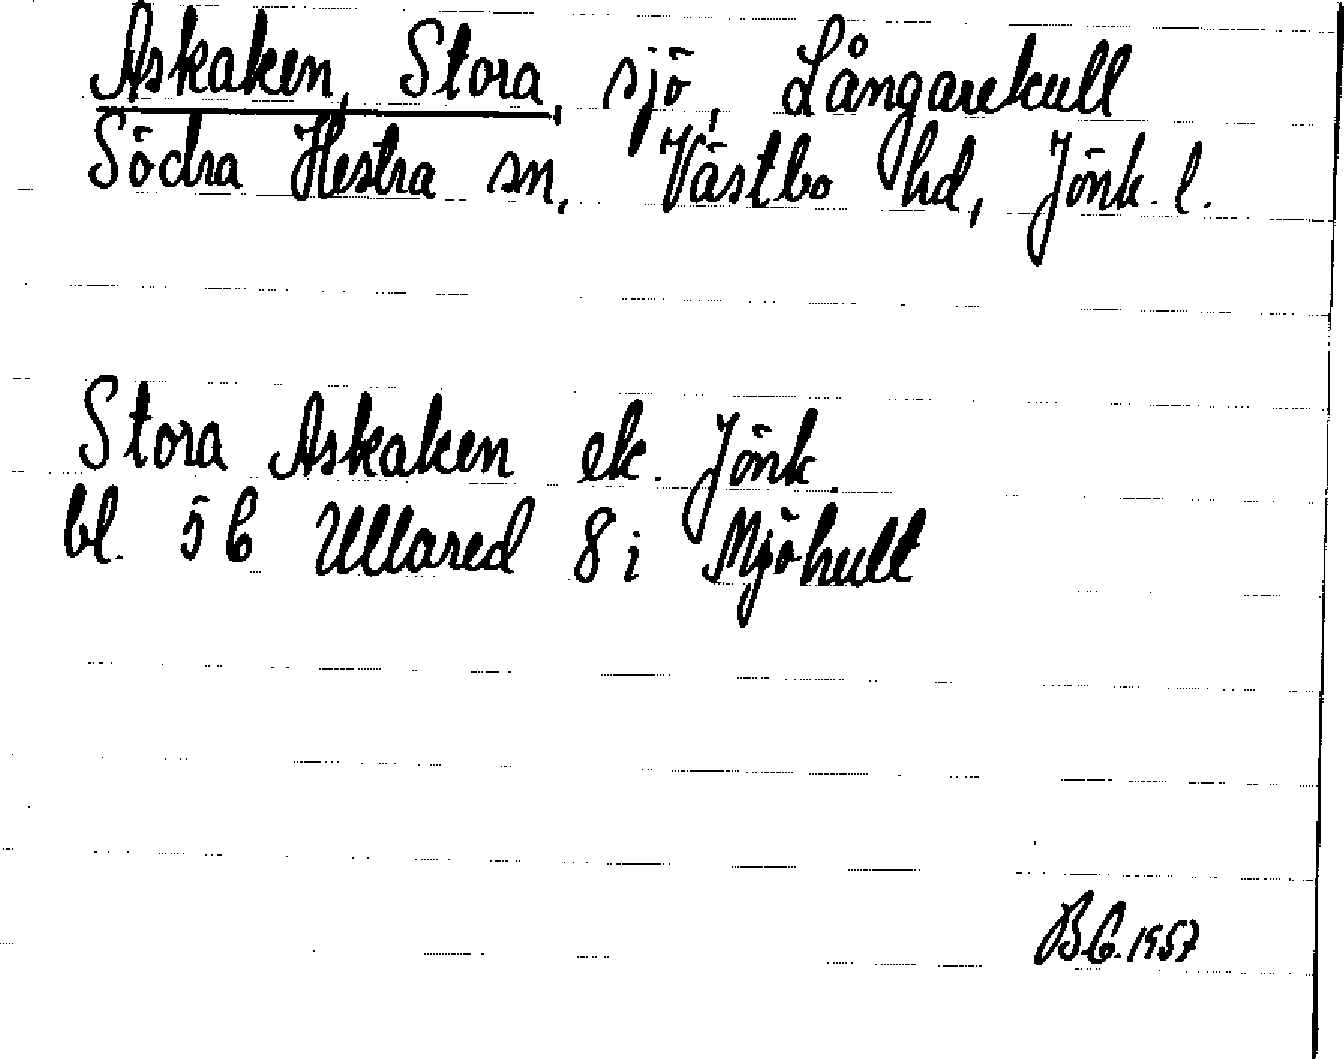 Askaken, Stora, sjö, Långarekull
Södra Hestra sn, Västbo hd, Jönk. l.
Stora Askaken ek. Jönk.
bl. 5b Ullared 8 i Mjöhult
B C. 1957